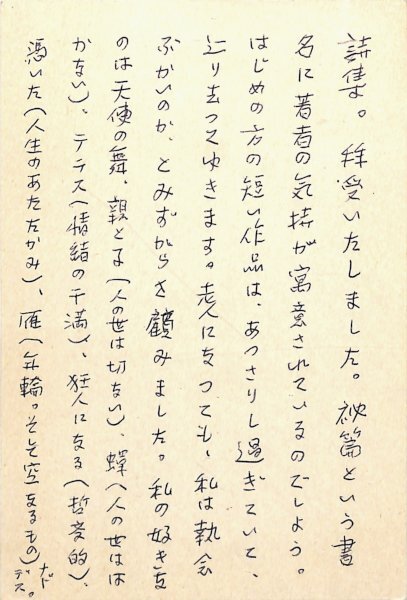 詩集。拝受いたしました。秘篇という書
名に著者の気持が寓意されているのでしよう。
はじめの方の短い作品は、あつさりし過ぎていて、
辷り去つてゆきます。老人になつても、私は執念
ぶかいのか、とみずからを顧みました。私の好きな
のは天使の舞、親と子(人の世は切ない)、蟬(人の世ははは
かない)、テテス(情緒の干満)、狂人になる(哲学的)、
憑いた(人生のあたたかみ)、雁(年輪。そして空なるもの)ナドデス。